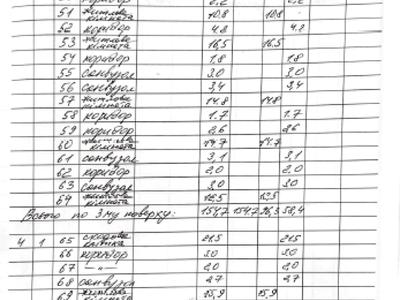 51 житлова кімната 10,8 10,8
52 коридор 4.2 4.2
53 житлова кімната 16,5 16,5
54 коридор 1.8 1.8
55 санвузол 3.0 3.0
56 санвузол 3,4 3,4
57 житлова кімната 14.8 14.8
58 коридор 1.7 1.7
59 коридор 2,6 2,6
60 житлова кімната 14.7 14.7
61 санвузол 3,1 3,1
62 коридор 2.0 2.0
63 санвузол 3.0 3.0
64 житлова кімната
Всього по 3му поверху: 154,7 154.7 58,4
4 1 65 сходова клітка 21.5 21.5
66 коридор 3.0 3.0
67 -„- 2.0 2.0
68 санвузол 2.7 2.7
69 15,9 15,9